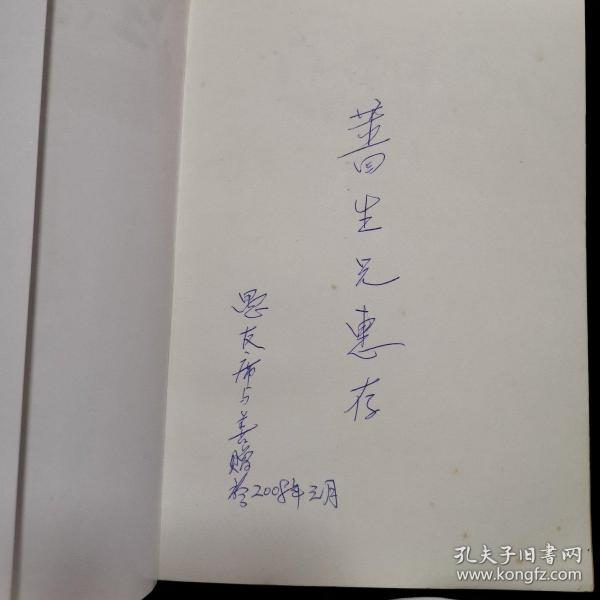 蔷生兄惠存
愚友席与善赠
於2008年元月
孔夫子旧书网
www.kongfz.com